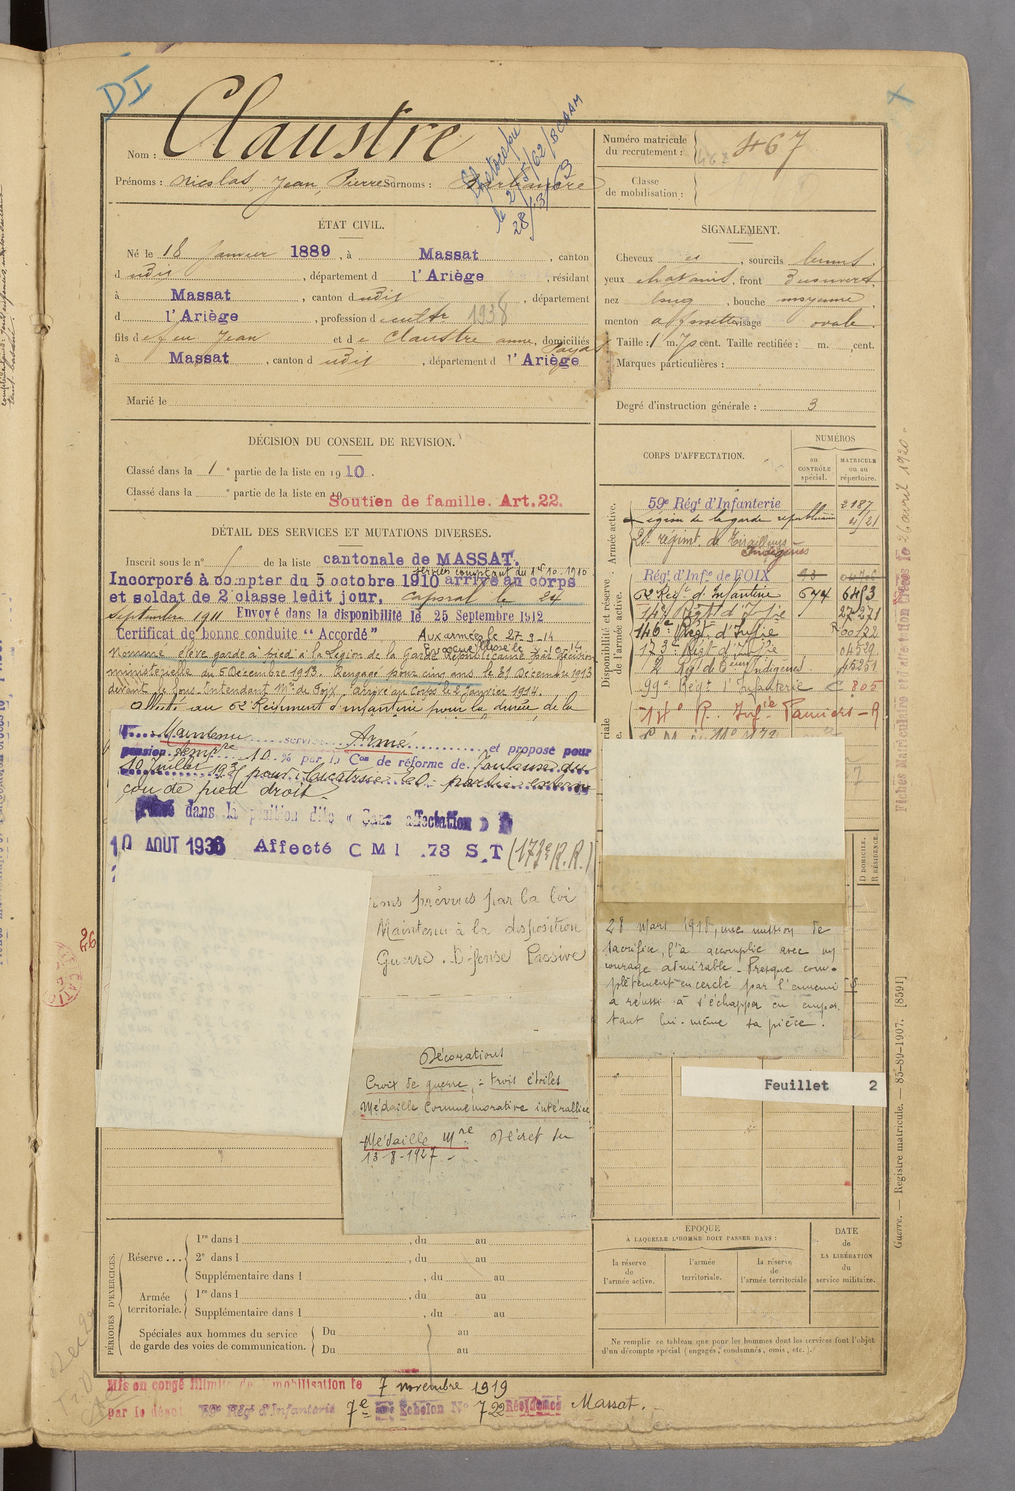 DI
Nom : Claustre
Prénoms : Nicolas Jean Pierre Surnoms :
Photocopie
le 2/5/62/BCAAM
28/3/63
Numéro matricule du recrutement : 467
Classe de mobilisation :
ÉTAT CIVIL.
Né le 18 Janvier 1889, à Massat, canton
dudit, département d l'Ariège, résidant
à Massat, canton dudit, département
d l'Ariège, profession de cultr 1938
fils de feu Jean et de Claustre anne, domiciliés
à Massat, canton dudit, département d l'Ariège
Marié le
SIGNALEMENT.
Cheveux et, sourcils bruns
yeux chatains, front découvert
nez long, bouche moyenne,
menton à fossette visage ovale.
Taille : 1 m. 70 cent. Taille rectifiée : m. cent.
Marques particulières :
Degré d'instruction générale : 3
DÉCISION DU CONSEIL DE REVISION.
Classé dans la 1e partie de la liste en 1910.
Classé dans la e partie de la liste en 19
Soutien de famille. Art. 22.
DÉTAIL DES SERVICES ET MUTATIONS DIVERSES.
Inscrit sous le n° de la liste cantonale de MASSAT.
services comptant du 1er 10. 1910
Incorporé à compter du 5 octobre 1910 arrivé au corps
et soldat de 2e classe ledit jour, caporal le 24
septembre 1911 Envoyé dans la disponibilité le 25 Septembre 1912
Certificat de bonne conduite "Accordé" Aux armées le 27-9-14
Nommé élève garde à pied à la Légion de la Garde Républicaine par décision
ministérielle du 5 Décembre 1913. Rengagé pour cinq ans le 31 Décembre 1913
devant le Sous-Intendant Mre de Foix. Arrivé au Corps le 2 Janvier 1914.
Affecté au 62e Régiment d'infanterie pour la durée de la
Maintenu service Armé et proposé pour
pension tempre 10 % par la Con de réforme de Toulouse du
10 Juillet
cou de pied droit
Placé dans la position dite « Sans affectation »
10 AOUT 1936 Affecté C M I .73 S.T (172e R.R.)
ons prévues par la loi
Maintenu à la disposition
Guerre. Défense Passive
Décorations
Croix de guerre, = trois étoiles
Médaille Commémorative interalliée
Médaille Mre Décret du
13-8-1927
CORPS D'AFFECTATION.
NUMÉROS
au CONTRÔLE spécial.
MATRICULE ou au répertoire.
Armée active.
Disponibilité et réserve de l'armée active.
59e Régt d'Infanterie 2187
Légion de la garde républicaine 4/21
2e régimt. de Tirailleurs Indigènes
Régt d'Infie de FOIX
62 Régt d'Infanterie 644 6483
143e Régt d'Infie 27271
146e Régt d'Infie
123e Régt d'Infie 04529
2 Rgt de Eeurs Indigènes 45251
99e Régt d'Infanterie C 805
DOMICILE.
RÉSIDENCE.
28 mars 1918, une mission de
sacrifice, l'a accomplie avec un
courage admirable. Presque com-
plètement encerclé par l'ennemi
a réussi à s'échapper en empor
tant lui-même sa pièce.
Feuillet 2
PÉRIODES D'EXERCICES.
Réserve ...
1re dans l , du au
2e dans l , du au
Supplémentaire dans l , du au
Armée territoriale.
1re dans l , du au
Supplémentaire dans l , du au
Spéciales aux hommes du service de garde des voies de communication.
Du au
Du au
ÉPOQUE
À LAQUELLE L'HOMME DOIT PASSER DANS :
la réserve de l'armée active.
l'armée territoriale.
la réserve de l'armée territoriale
DATE de LA LIBÉRATION du service militaire.
Ne remplir ce tableau que pour les hommes dont les services font l'objet
d'un décompte spécial (engagés, condamnés, omis, etc.).
Mis en congé illimité de démobilisation le 7 novembre 1919
par le dépôt 59e Régt d'Infanterie 7e Echelon N° 722 Résidence Massat.
Fiches Matriculaire et d'affectation créées le 26 avril 1920
Guerre. — Registre matricule. — 85-89-1907. [8591]